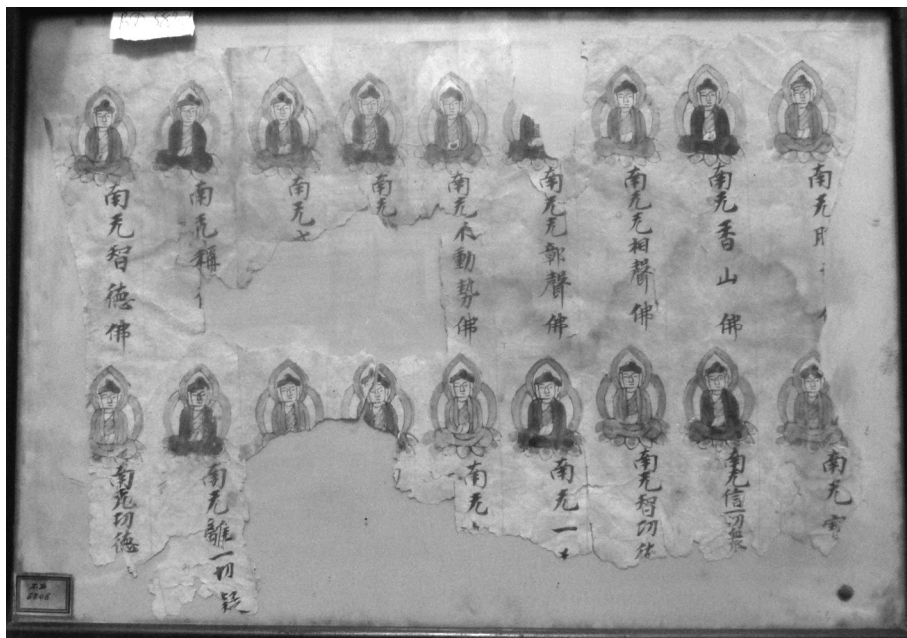 南无
南无香山佛
南无无相聲佛
南无无彰聲佛
南无不動勢佛
南无
南无
南无稱
南无智德佛
南无
南无信一切衆
南无智功德
南无一
南无
南无離一切疑
南无功德